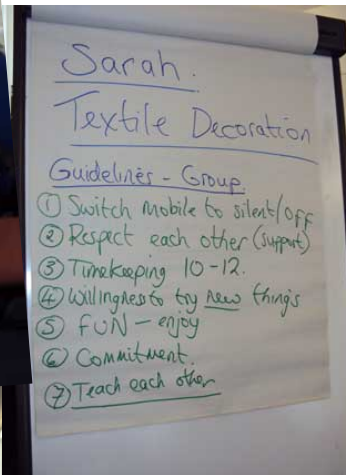 Sarah.
Textile Decoration
Guidelines - Group
① Switch mobile to silent/off
② Respect each other (support)
③ Timekeeping 10-12.
④ Willingness to try new things
⑤ FUN - enjoy
⑥ Commitment.
⑦ Teach each other